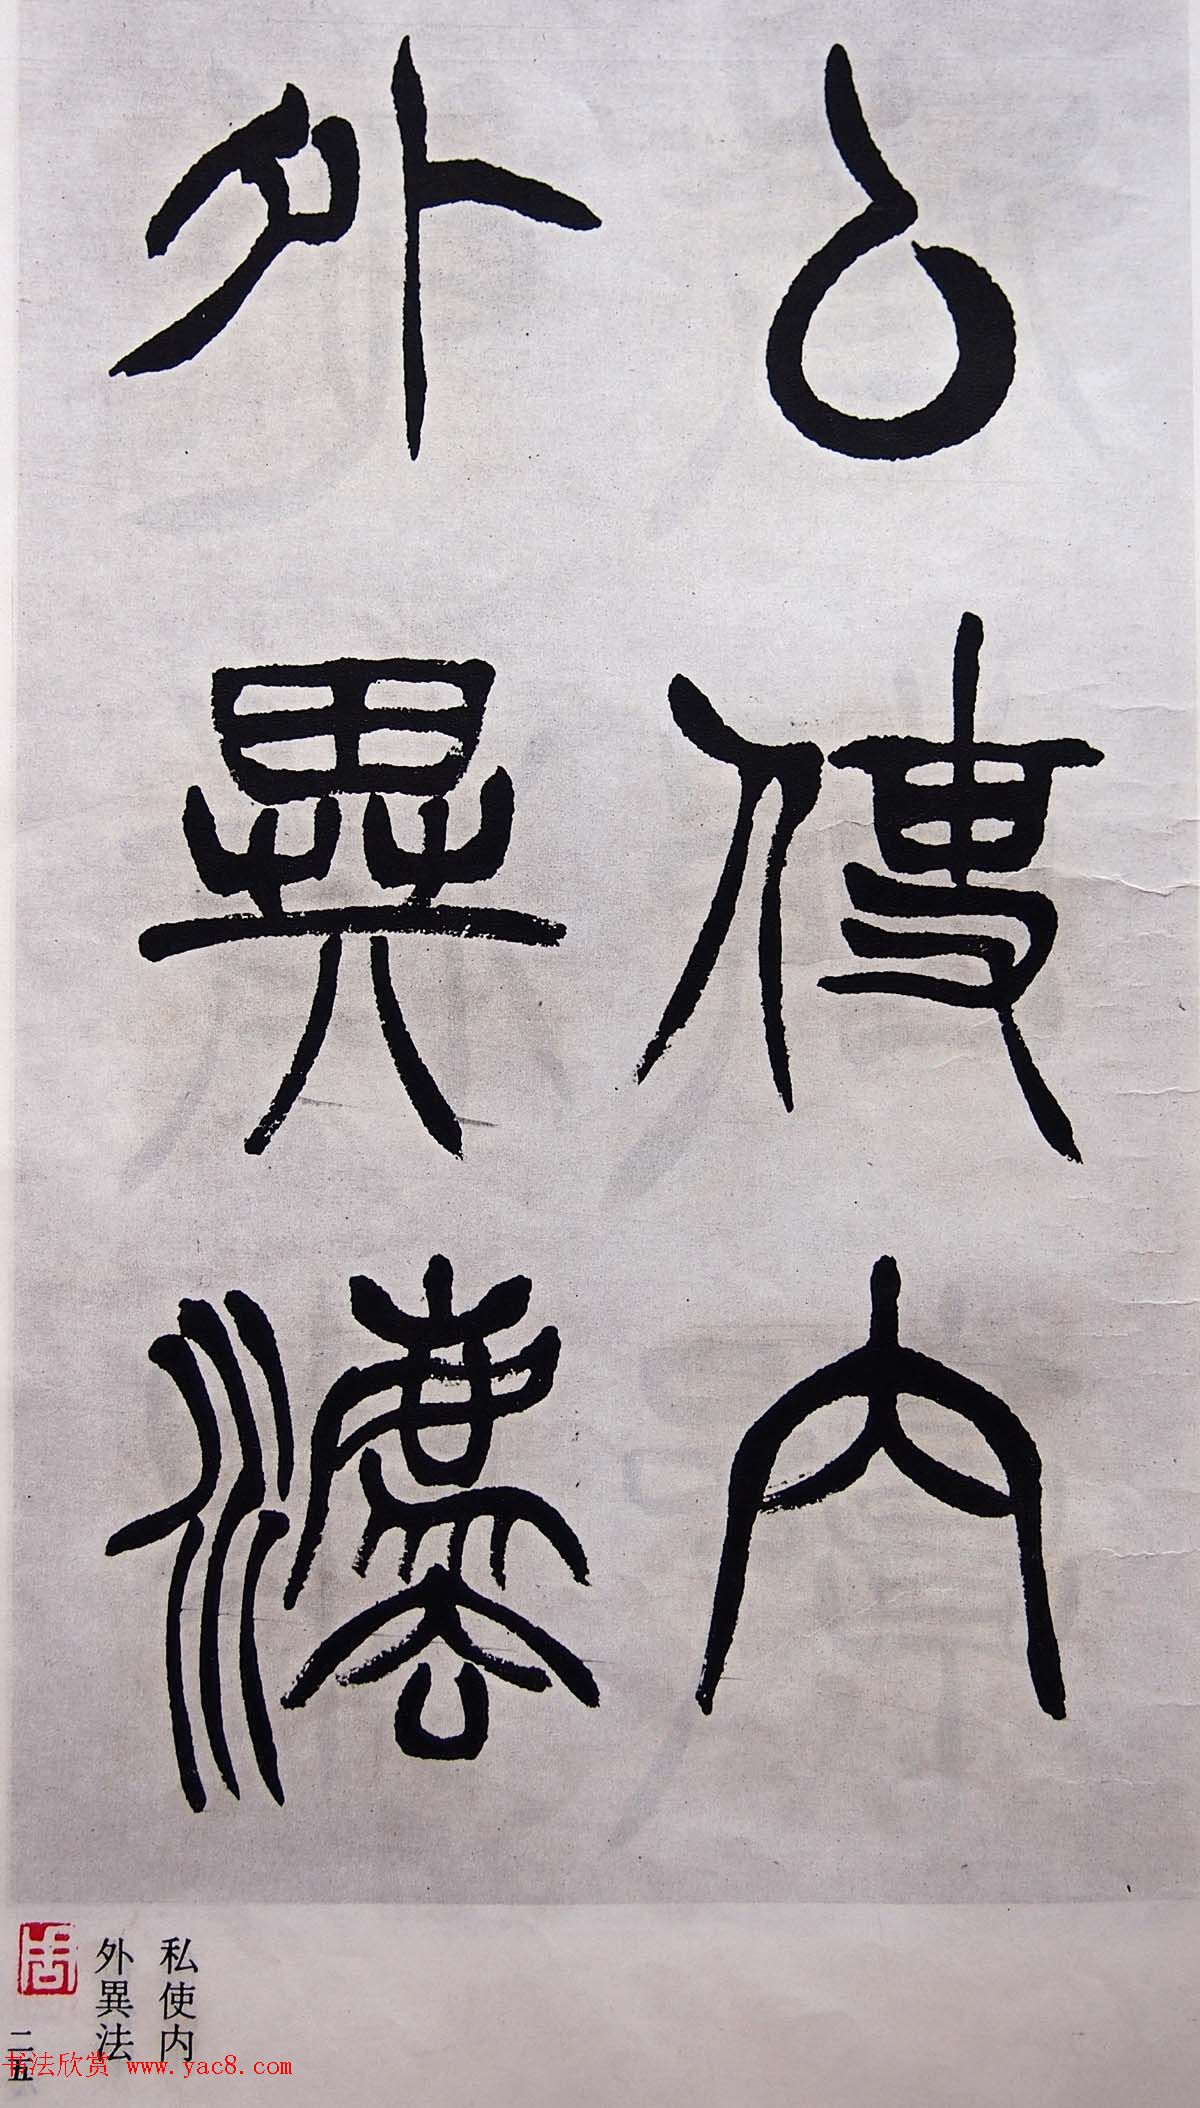 厶使内
外異灋
私使内
外異法
二五
书法欣赏 www.yac8.com